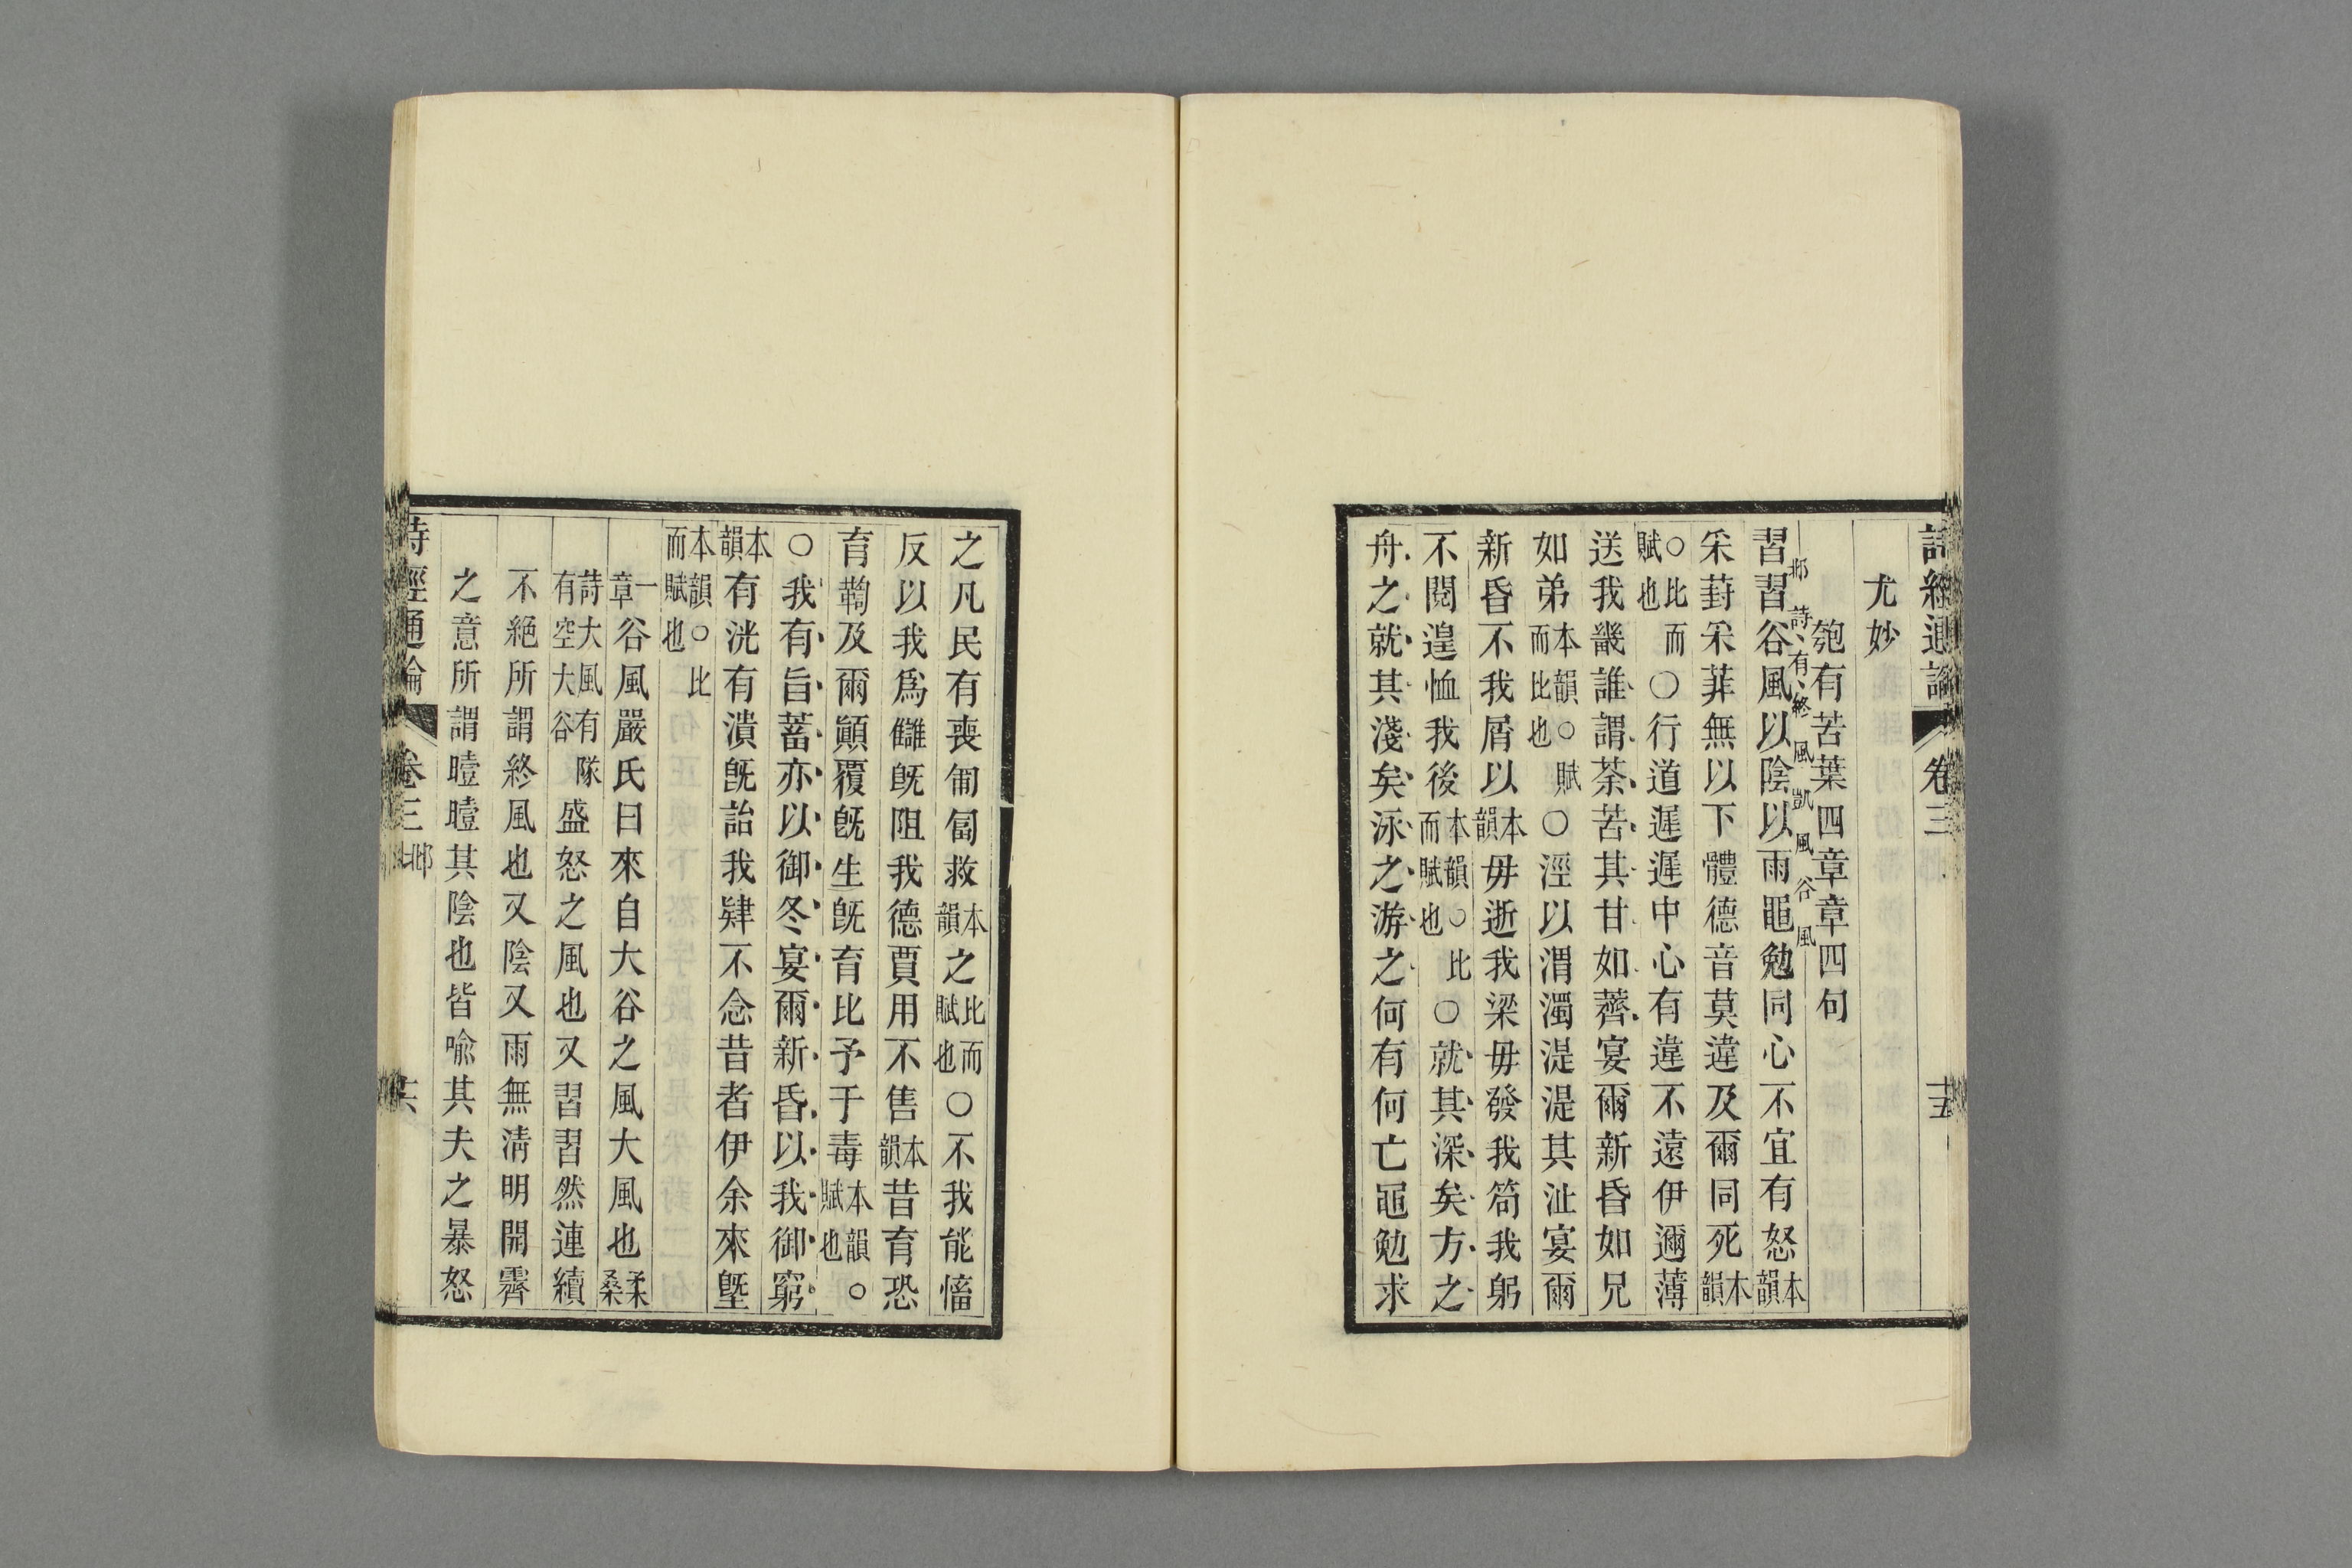 詩經通論 卷三 十五
尤妙
匏有苦葉四章章四句
邶詩有終風凱風谷風
習習谷風以陰以雨黽勉同心不宜有怒本韻
采葑采菲無以下體德音莫違及爾同死本韻
○比而賦也○行道遲遲中心有違不遠伊邇薄
送我畿誰謂荼苦其甘如薺宴爾新昏如兄
如弟本韻○賦而比也○涇以渭濁湜湜其沚宴爾
新昏不我屑以本韻毋逝我梁毋發我笱我躬
不閱遑恤我後本韻○比而賦也○就其深矣方之
舟之就其淺矣泳之游之何有何亡黽勉求
之凡民有喪匍匐救本韻之比而賦也○不我能慉
反以我爲讎旣阻我德賈用不售本韻昔育恐
育鞫及爾顚覆旣生旣育比予于毒本韻○賦也
○我有旨蓄亦以御冬宴爾新昏以我御窮
本韻有洸有潰旣詒我肄不念昔者伊余來墍
本韻○比而賦也
一章谷風嚴氏曰來自大谷之風大風也桑柔
詩大風有隧有空大谷盛怒之風也又習習然連續
不絕所謂終風也又陰又雨無淸明開霽
之意所謂曀曀其陰也皆喩其夫之暴怒
詩經通論 卷三 邶 十六